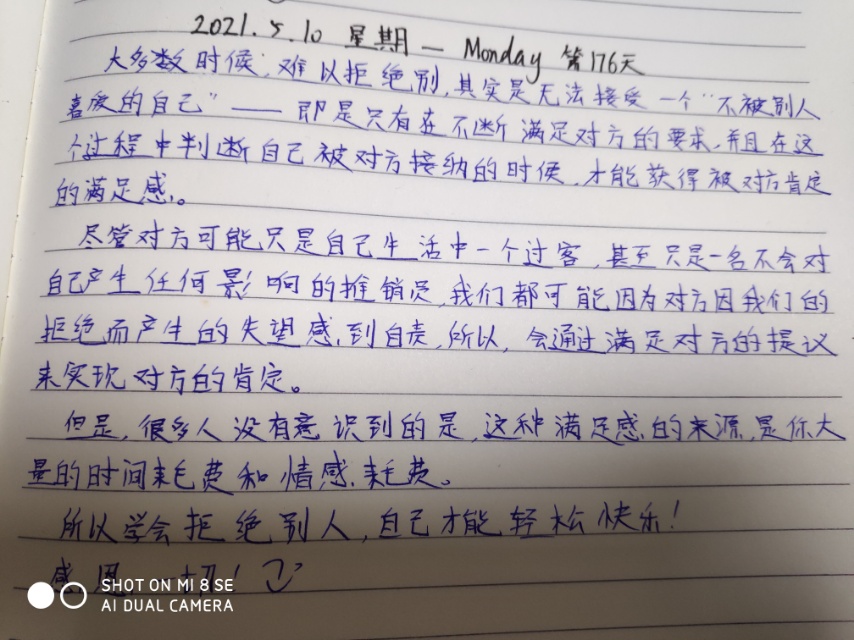 2021.5.10 星期一 Monday 第176天
大多数时候,难以拒绝别,其实是无法接受一个“不被别人
喜爱的自己”——即是只有在不断满足对方的要求,并且在这
个过程中判断自己被对方接纳的时候,才能获得被对方肯定
的满足感。
尽管对方可能只是自己生活中一个过客,甚至只是一名不会对
自己产生任何影响的推销员,我们都可能因为对方因我们的
拒绝而产生的失望感,到自责,所以,会通过满足对方的提议
来实现对方的肯定。
但是,很多人没有意识到的是,这种满足感的来源,是你大
量的时间耗费和情感耗费。
所以学会拒绝别人,自己才能轻松快乐!
感恩一切!
SHOT ON MI 8 SE
AI DUAL CAMERA